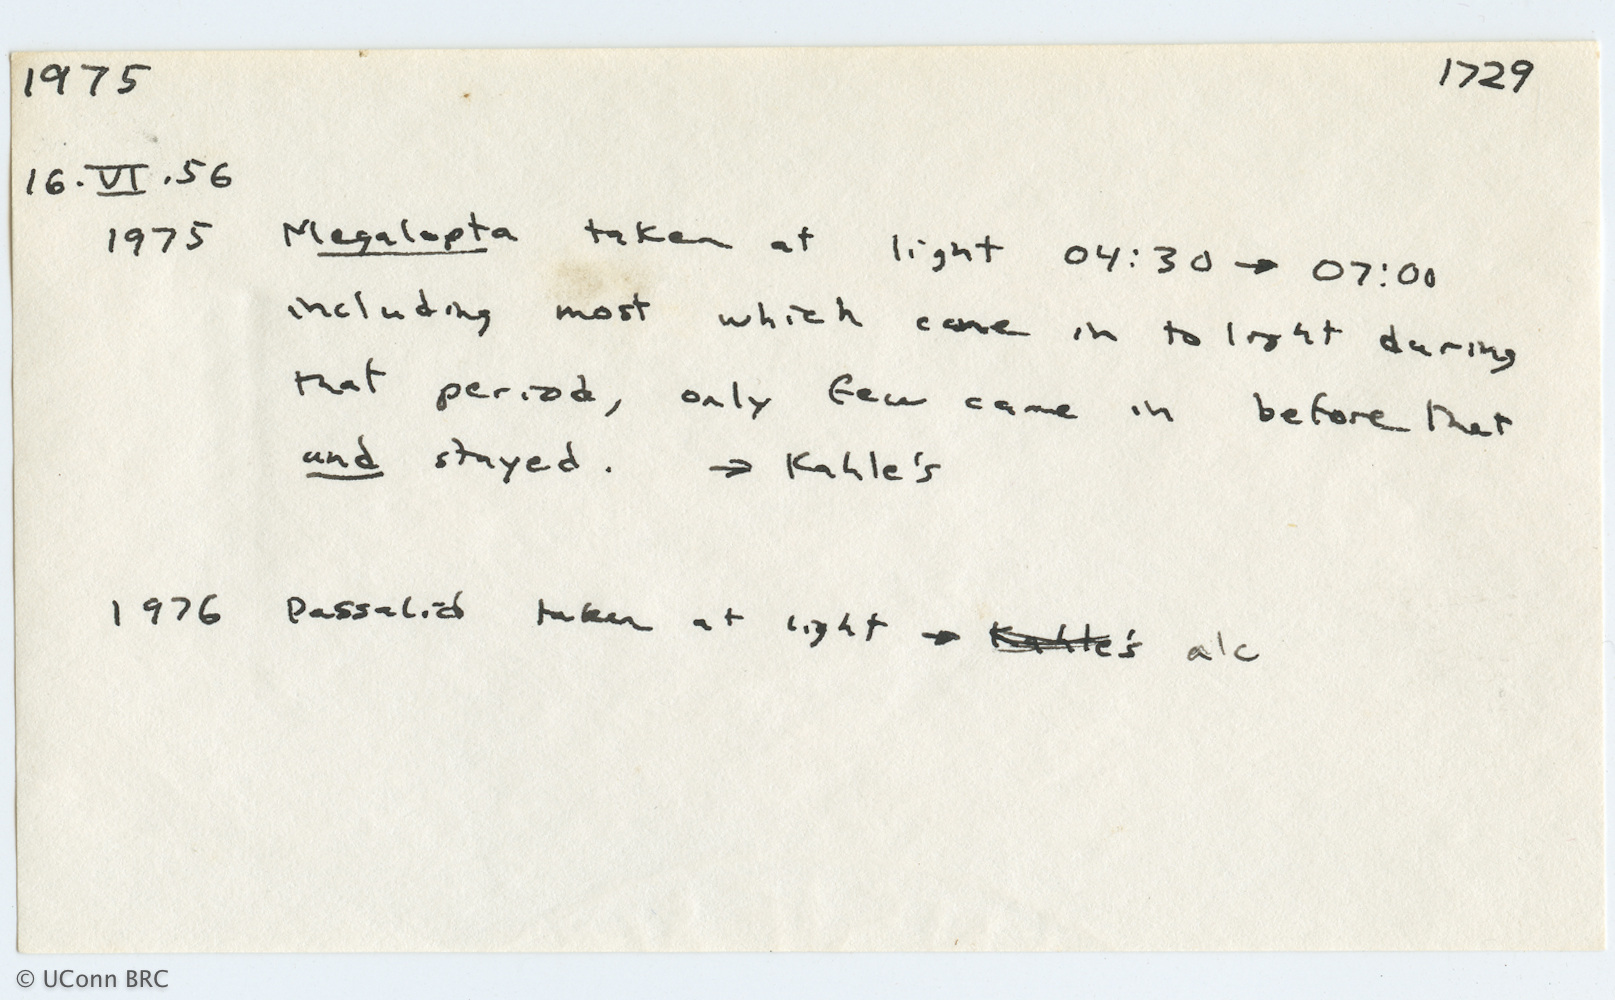 1975 1729
16.VI.56
1975 Megalopta taken at light 04:30 → 07:00
including most which came in to light during
that period, only few came in before that
and stayed. → Kahle's
1976 Passalid taken at light → Kahle's alc
© UConn BRC